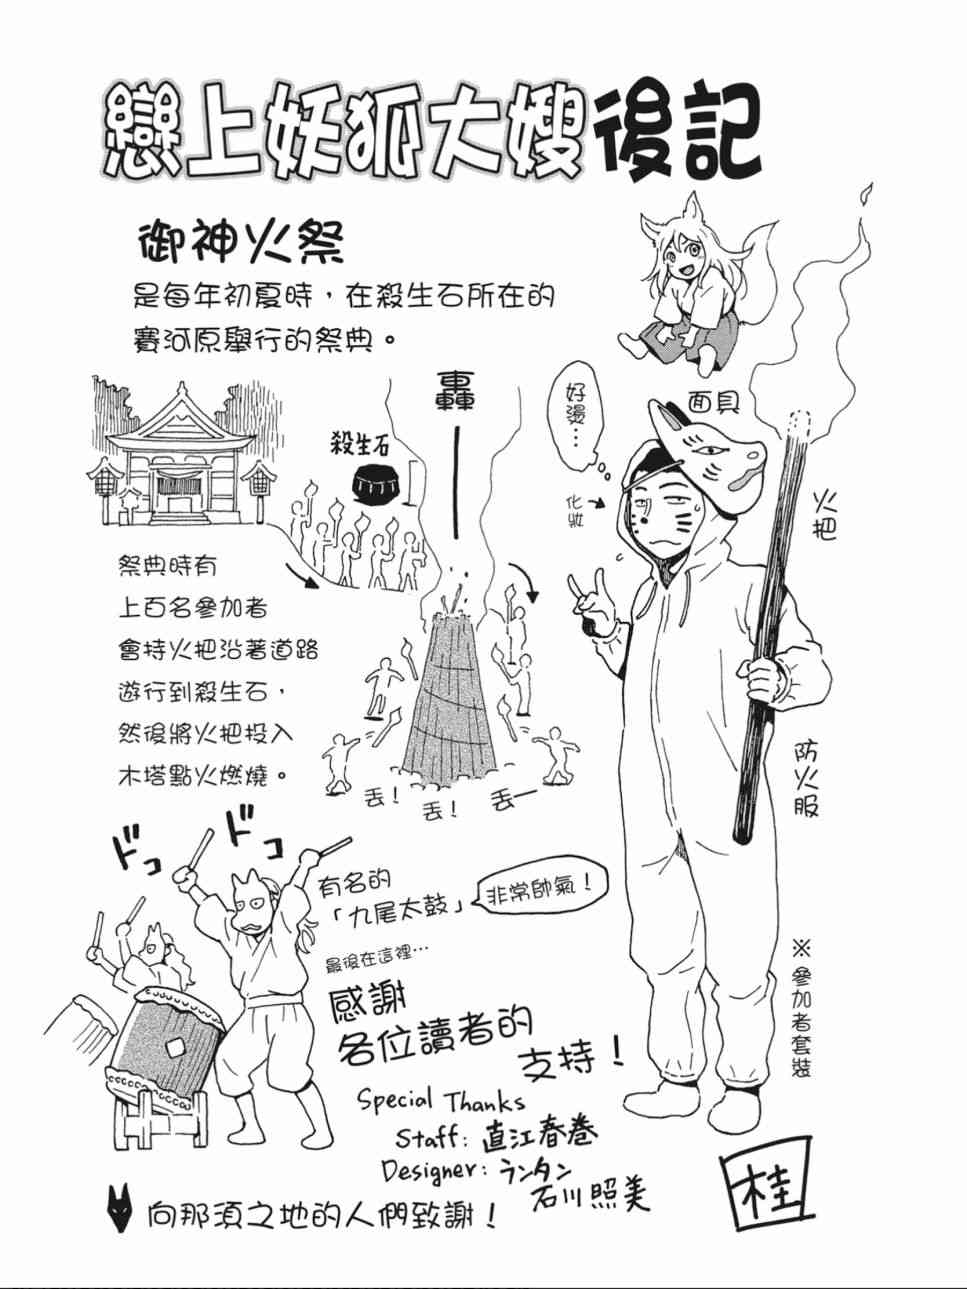 戀上妖狐大嫂後記
御神火祭
是每年初夏時，在殺生石所在的
賽河原舉行的祭典。
轟
殺生石
好燙…
面具
化妝
火把
祭典時有
上百名參加者
會持火把沿著道路
遊行到殺生石，
然後將火把投入
木塔點火燃燒。
丟！
丟！
丟一
防火服
ドコ
ドコ
有名的
「九尾太鼓」
非常帥氣！
※參加者套裝
最後在這裡…
感謝
各位讀者的
支持！
Special Thanks
Staff: 直江春巻
Designer: ランタン
石川照美
向那須之地的人們致謝！
桂